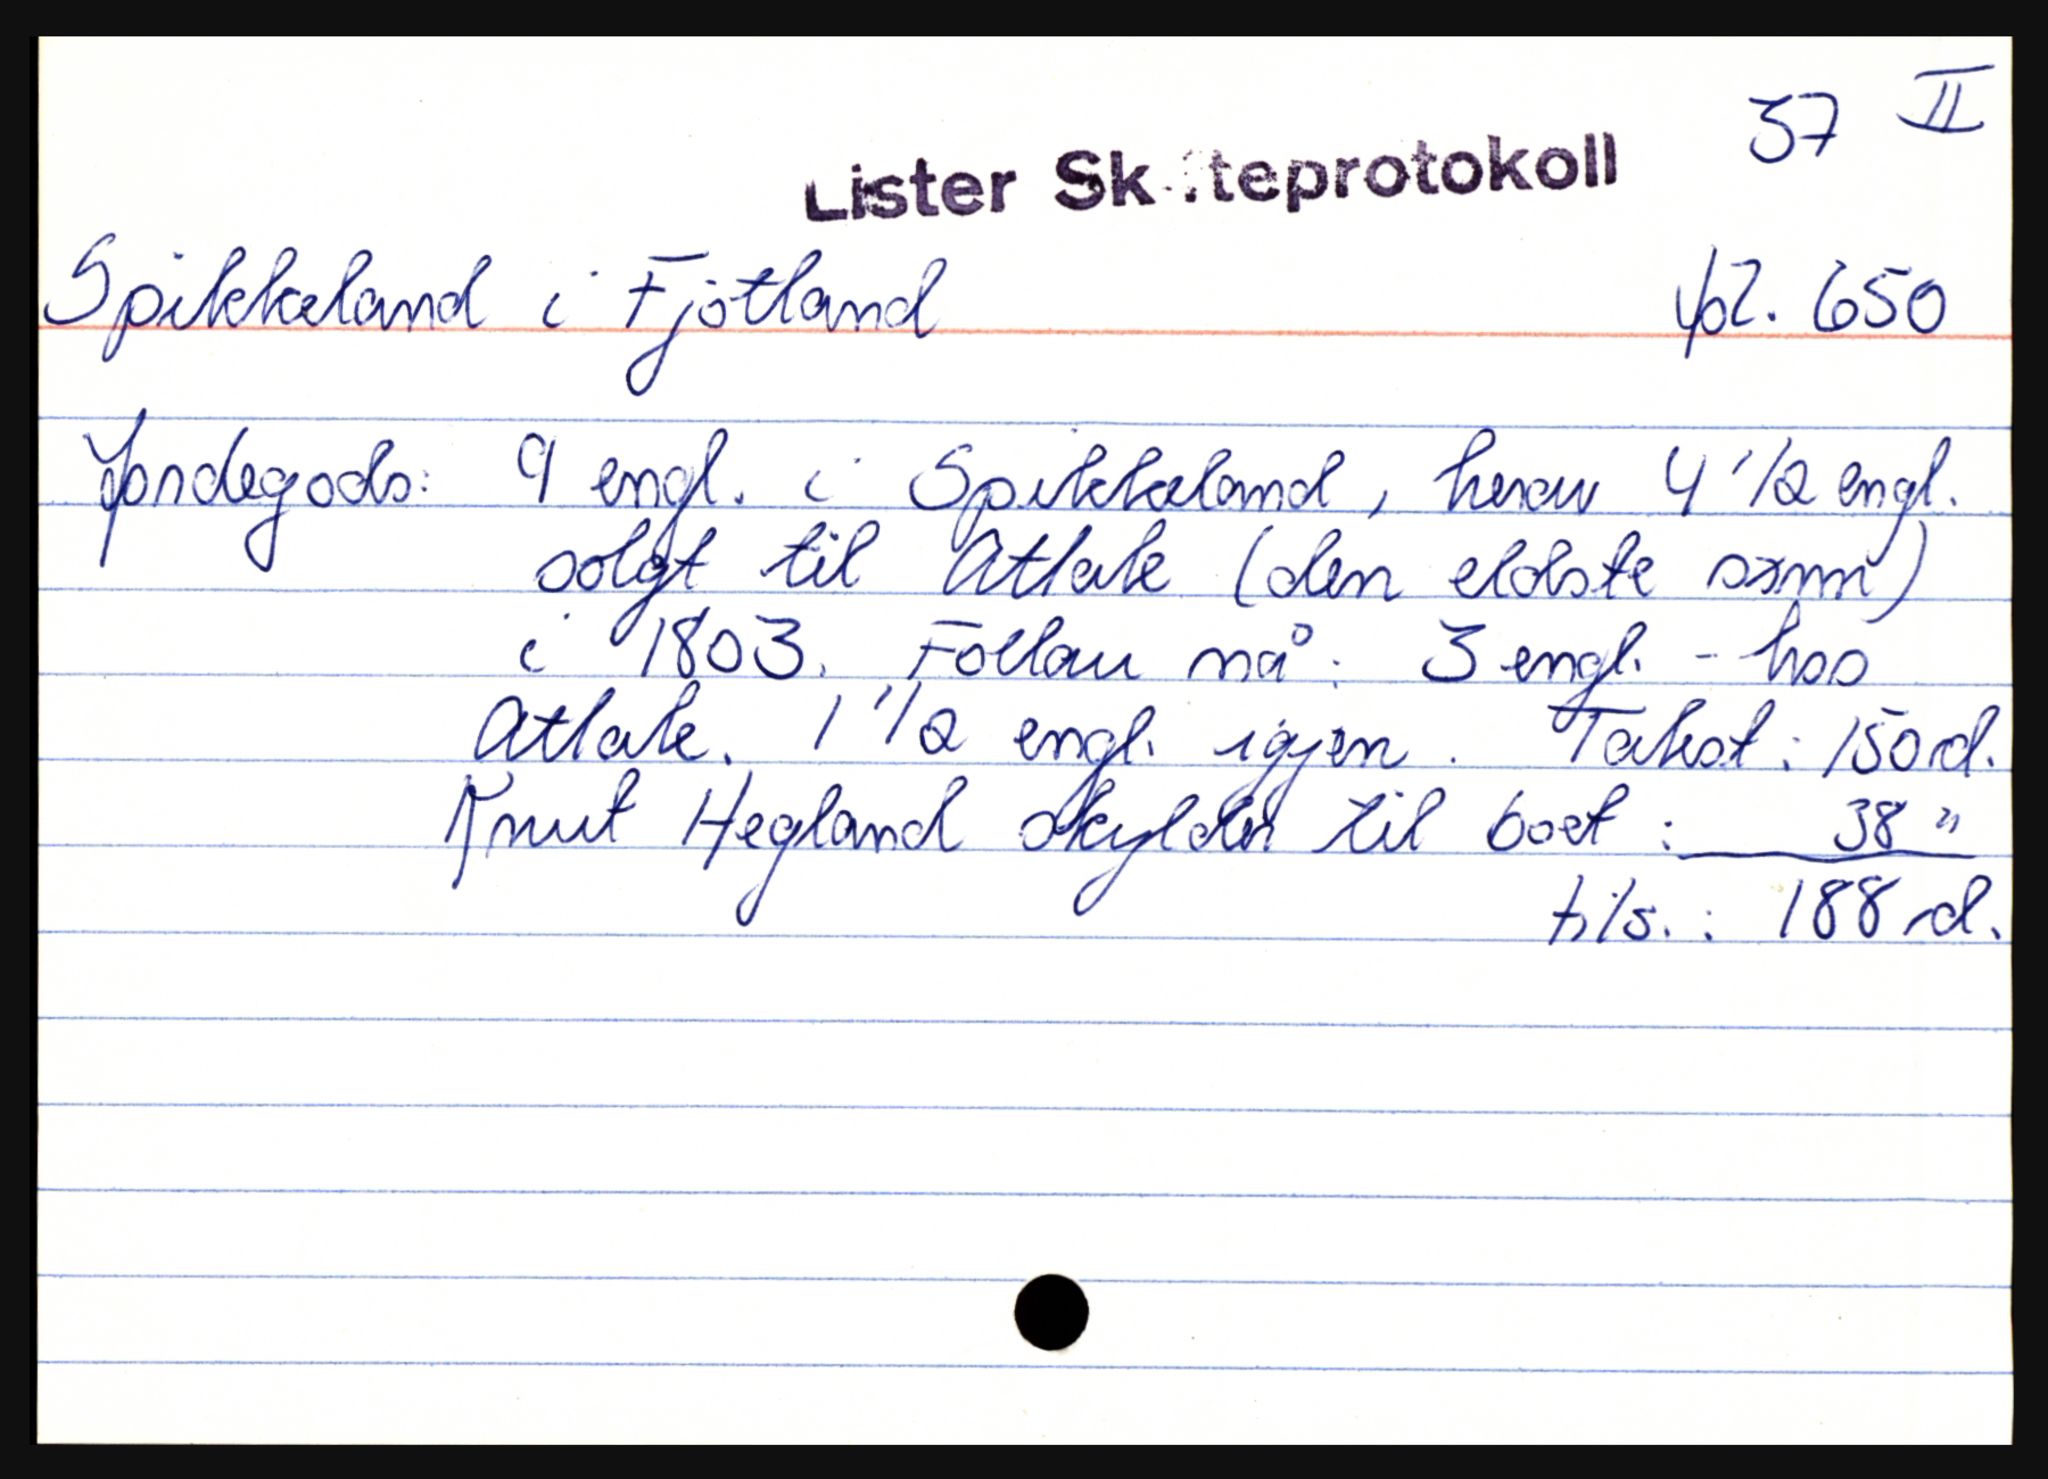 37 II
Lister Skifteprotokoll
Spikkeland i Fjotland fol. 650
Jordegods: 9 engl. i Spikkeland, herav 4 1/2 engl.
solgt til Atlak (den eldste sønn)
i 1803. Follau nå: 3 engl. - hos
Atlak. 1 1/2 engl. igjen. Takst: 150 rd.
Knut Hegland skylder til boet: 38 "
tils.: 188 rd.